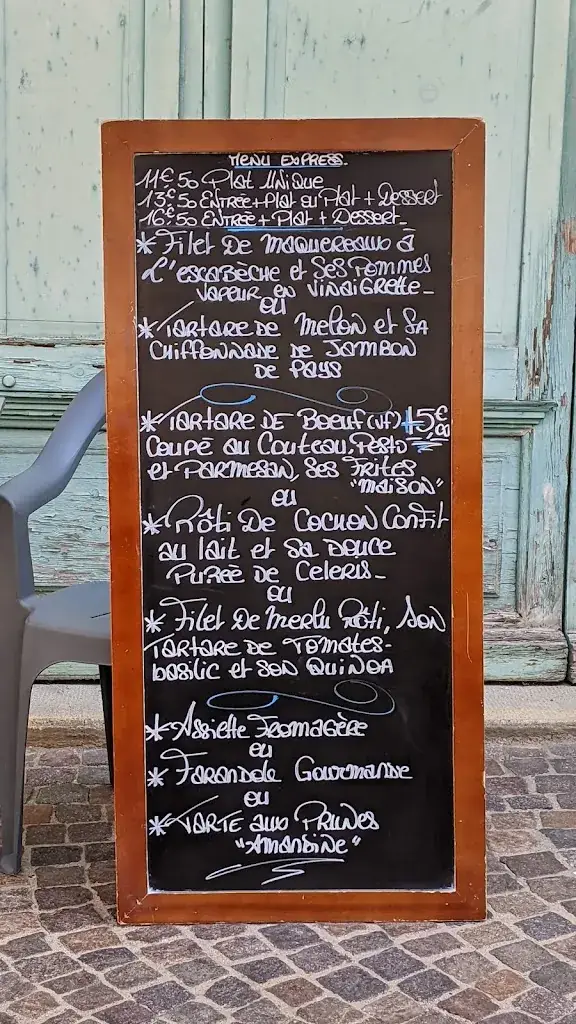 MENU EXPRESS.
11€50 Plat Unique
13€50 ENTRÉE+Plat ou Plat + DESSERT
16€50 ENTRÉE + Plat + DESSERT_
* Filet DE MAQUEREAUX à
L'ESCABÈCHE et SES POMMES
VAPEUR EN VINAIGRETTE_
OU
* TARTARE DE MELON et SA
CHIFFONNADE DE JAMBON
DE PAYS
* TARTARE DE BOEUF (VF) +5€,00
COUPÉ au COUTEAU, PESTO
et PARMESAN, SES FRITES
"MAISON"
OU
* RÔTI DE COCHON CONFIT
au lait et SA DOUCE
PURÉE DE CELERIS_
OU
* Filet DE MERLU RÔTI, SON
TARTARE DE TOMATES-
basilic et SON QUINOA
* Assiette FROMAGÈRE
OU
* FARANDOLE GOURMANDE
OU
* TARTE aux PRUNES
"AMANDINE"